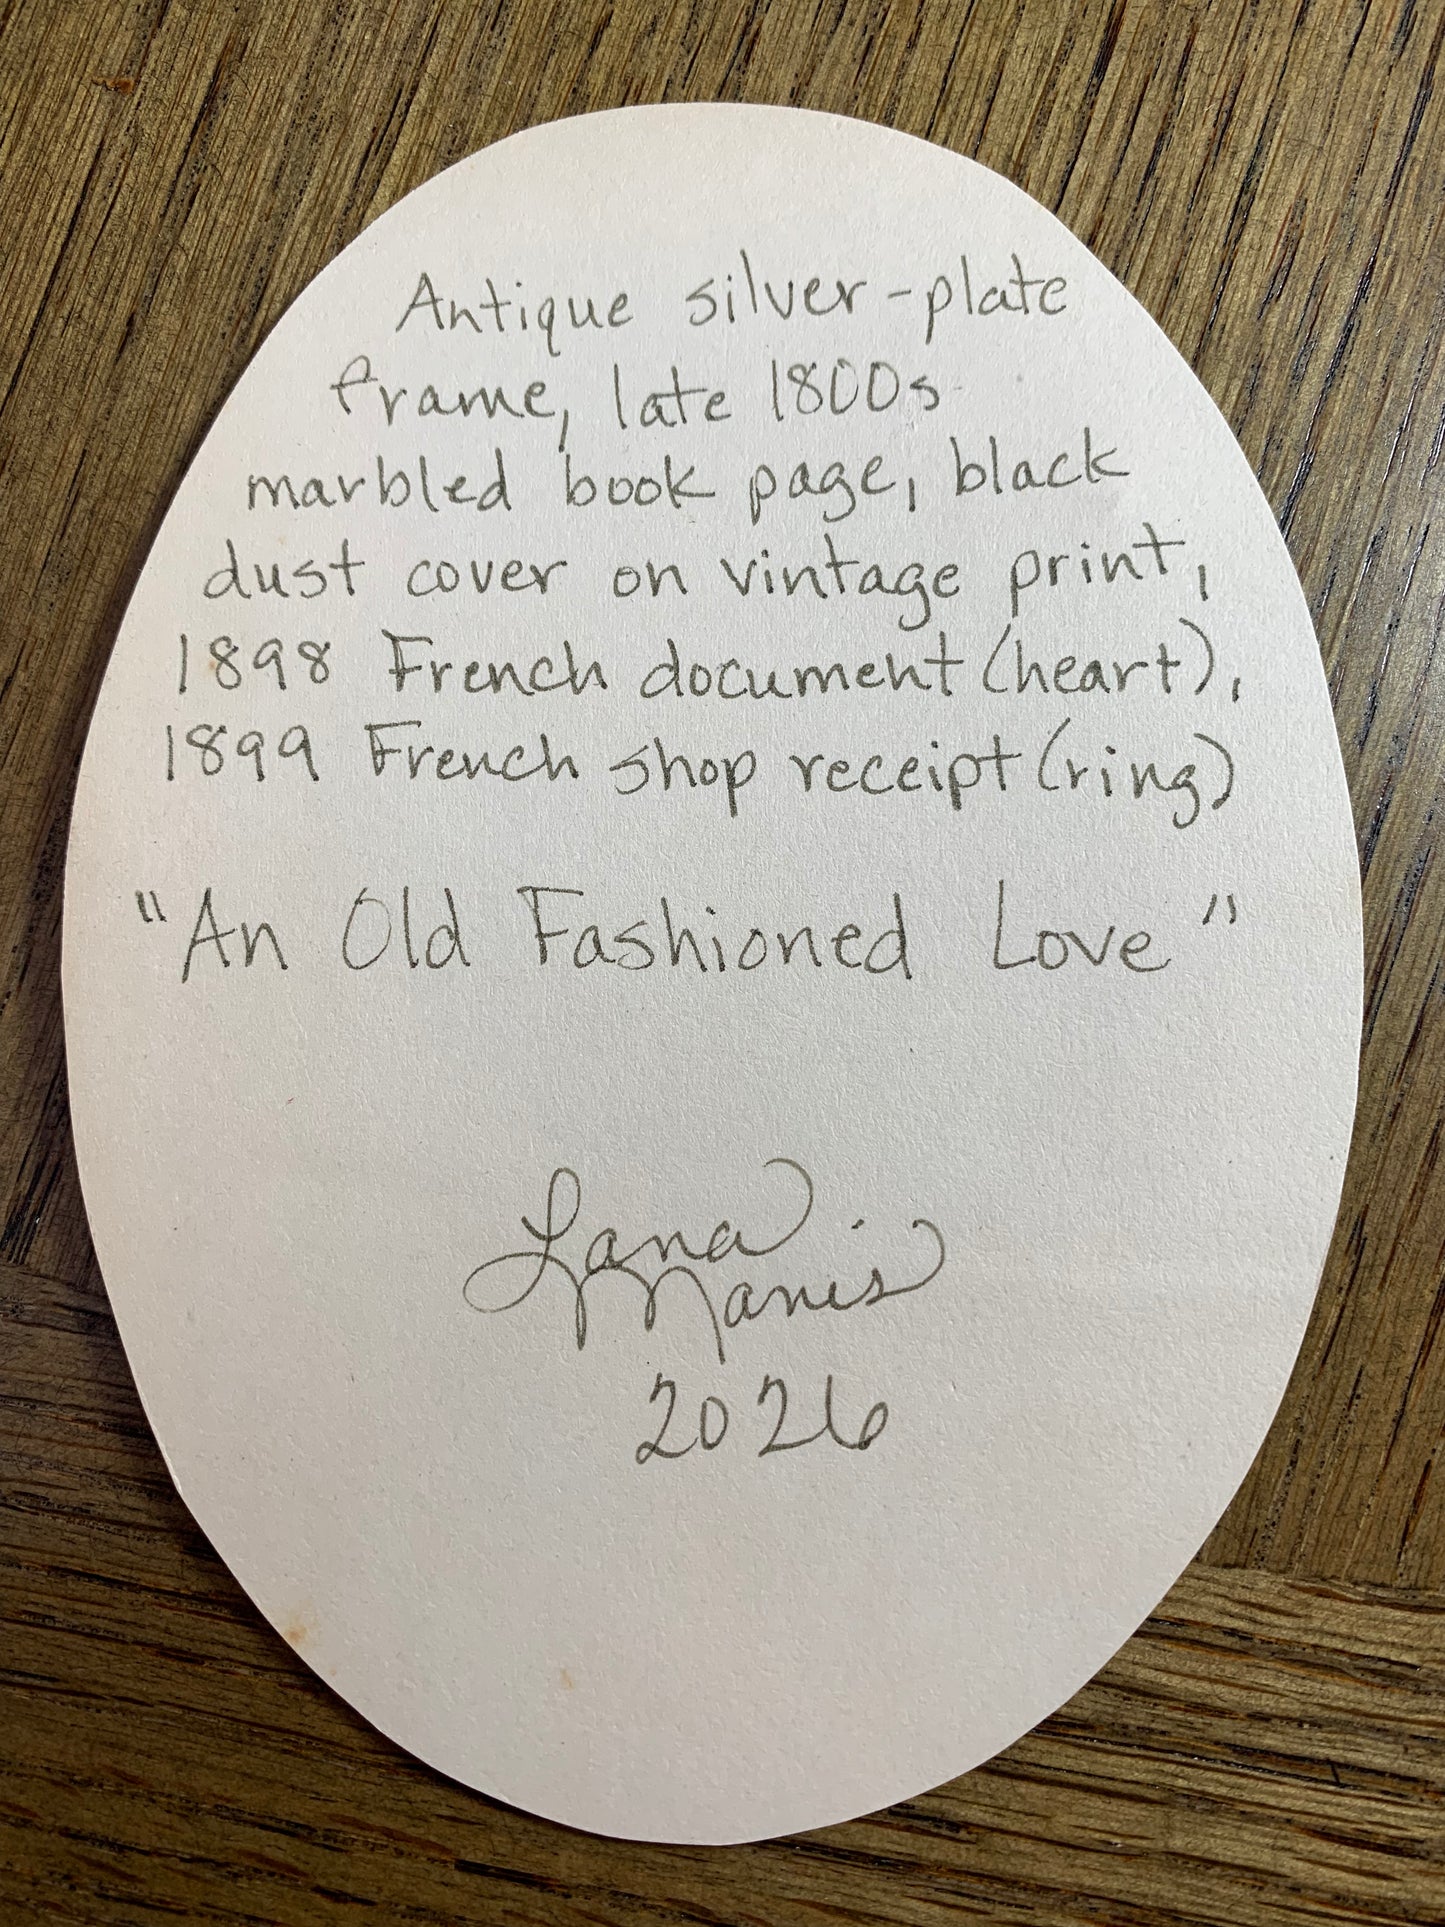 Antique silver-plate
frame, late 1800s
marbled book page, black
dust cover on vintage print,
1898 French document (heart),
1899 French shop receipt (ring)
"An Old Fashioned Love"
Lana
Manis
2026